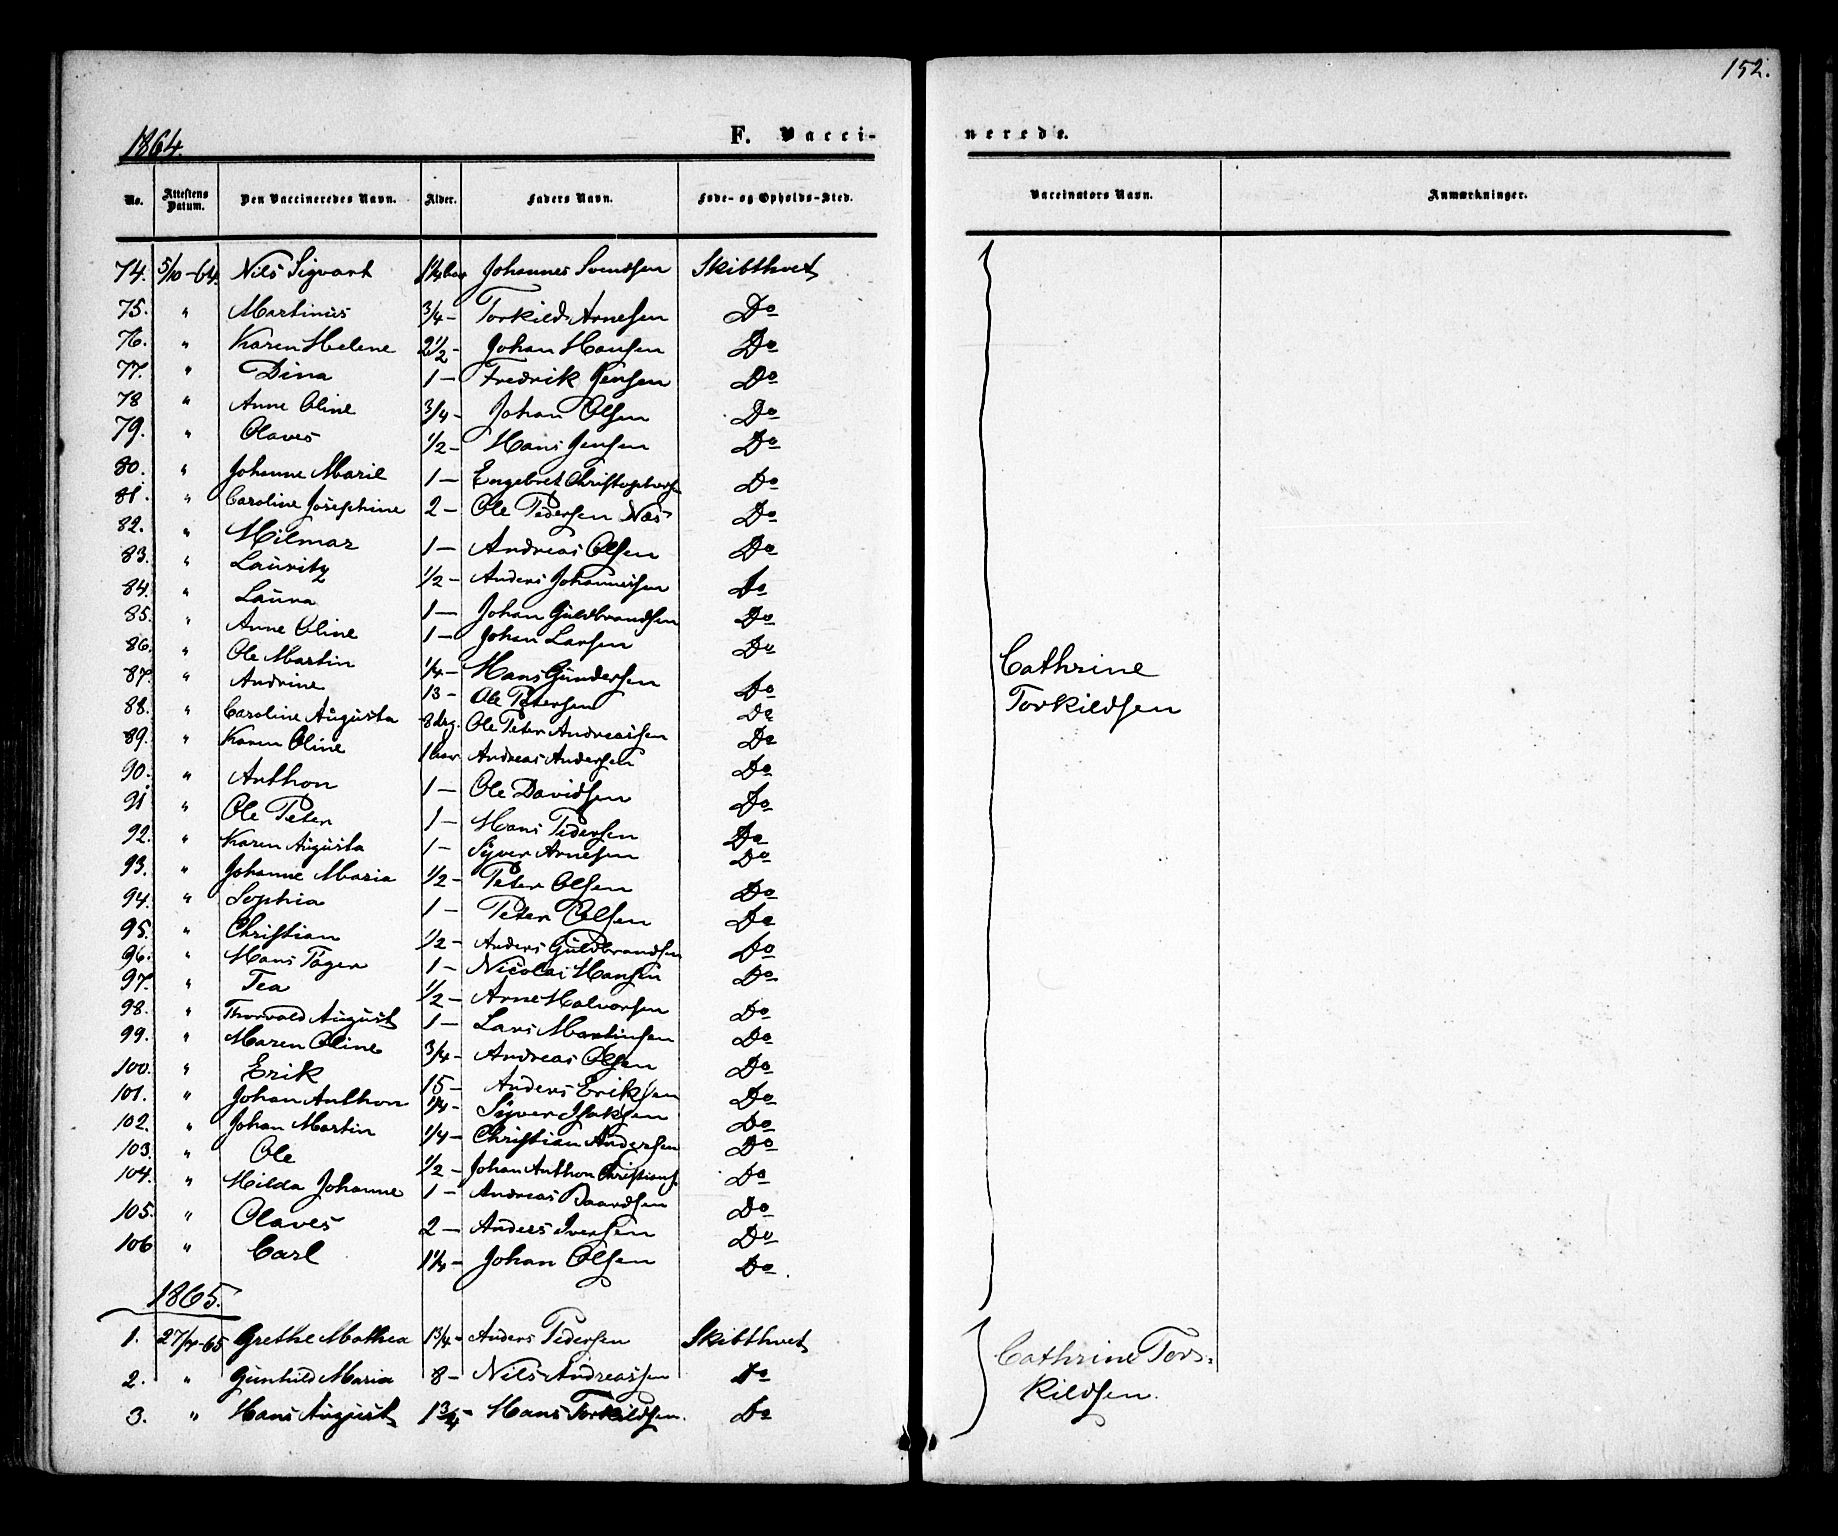 152.
1864.
F. Vaccinerede.
No. Attestens Datum. Den Vaccineredes Navn. Alder. Faders Navn. Føde- og Opholds-Sted. Vaccinators Navn. Anmærkninger.
74. 5/10-64. Nils Sigvart 1 1/4 Johannes Svendsen Skibthvet
75. " Martinus 3/4 - Torkild Arnesen Do
76. " Karen Helene 2 1/2 - Johan Hansen Do
77. " Dina 1 - Fredrik Jensen Do
78 " Anne Oline 3/4 - Johan Olsen Do
79. " Olaves 1/2 - Hans Jensen Do
80. " Johanne Marie 1 - Engebret Christophers Do
81. " Caroline Josephine 2 - Ole Pedersen Næs Do
82. " Hilmar 1 - Andreas Olsen Do
83. " Lauritz 1/2 - Anders Johannessen Do
84. " Laura 1 - Johan Guldbrandsen Do
85. " Anne Oline 1 - Johan Larsen Do
86. " Ole Martin 1/4 - Hans Gundersen Do
87. " Andrine 13 - Ole Petersen Do
88. " Caroline Augusta 8 dag. Ole Peter Andreassen Do
89. " Karen Oline 1 aar Andreas Andersen Do
90. " Anthon 1 - Ole Davidsen Do
91 " Ole Peter 1 - Hans Pedersen Do
92. " Karen Augusta 1 - Syver Arnesen Do
93. " Johanne Maria 1/2 - Peter Olsen Do
94. " Sophia 1 - Peter Olsen Do
95. " Christian 1/2 - Anders Guldbrandsen Do
96. " Hans Pager 1 - Nicolai Hansen Do
97. " Tea 1/2 - Arne Halvorsen Do
98. " Thorvald August 1 - Lars Martinsen Do
99. " Maren Oline 3/4 - Andreas Olsen Do
100. " Erik 15 - Anders Eriksen Do
101. " Johan Anthon 1/4 - Syver Isaksen Do
102. " Johan Martin 1/4 - Christian Andersen Do
103. " Ole 1/2 - Johan Anthon Christians. Do
104. " Hilda Johanne 1 - Andreas Baardsen Do
105. " Olaves 2 - Anders Iversen Do
106 " Carl 1 1/4 - Johan Olsen Do.
Cathrine
Torkildsen
1865.
1. 27/4-65 Grethe Mathea 1 3/4 - Anders Pedersen Skibthvet
2. " Gunhild Maria 8 - Nils Andreassen Do
3. " Hans August 1 3/4 - Hans Torkildsen. Do
Cathrine Tor-
kildsen.